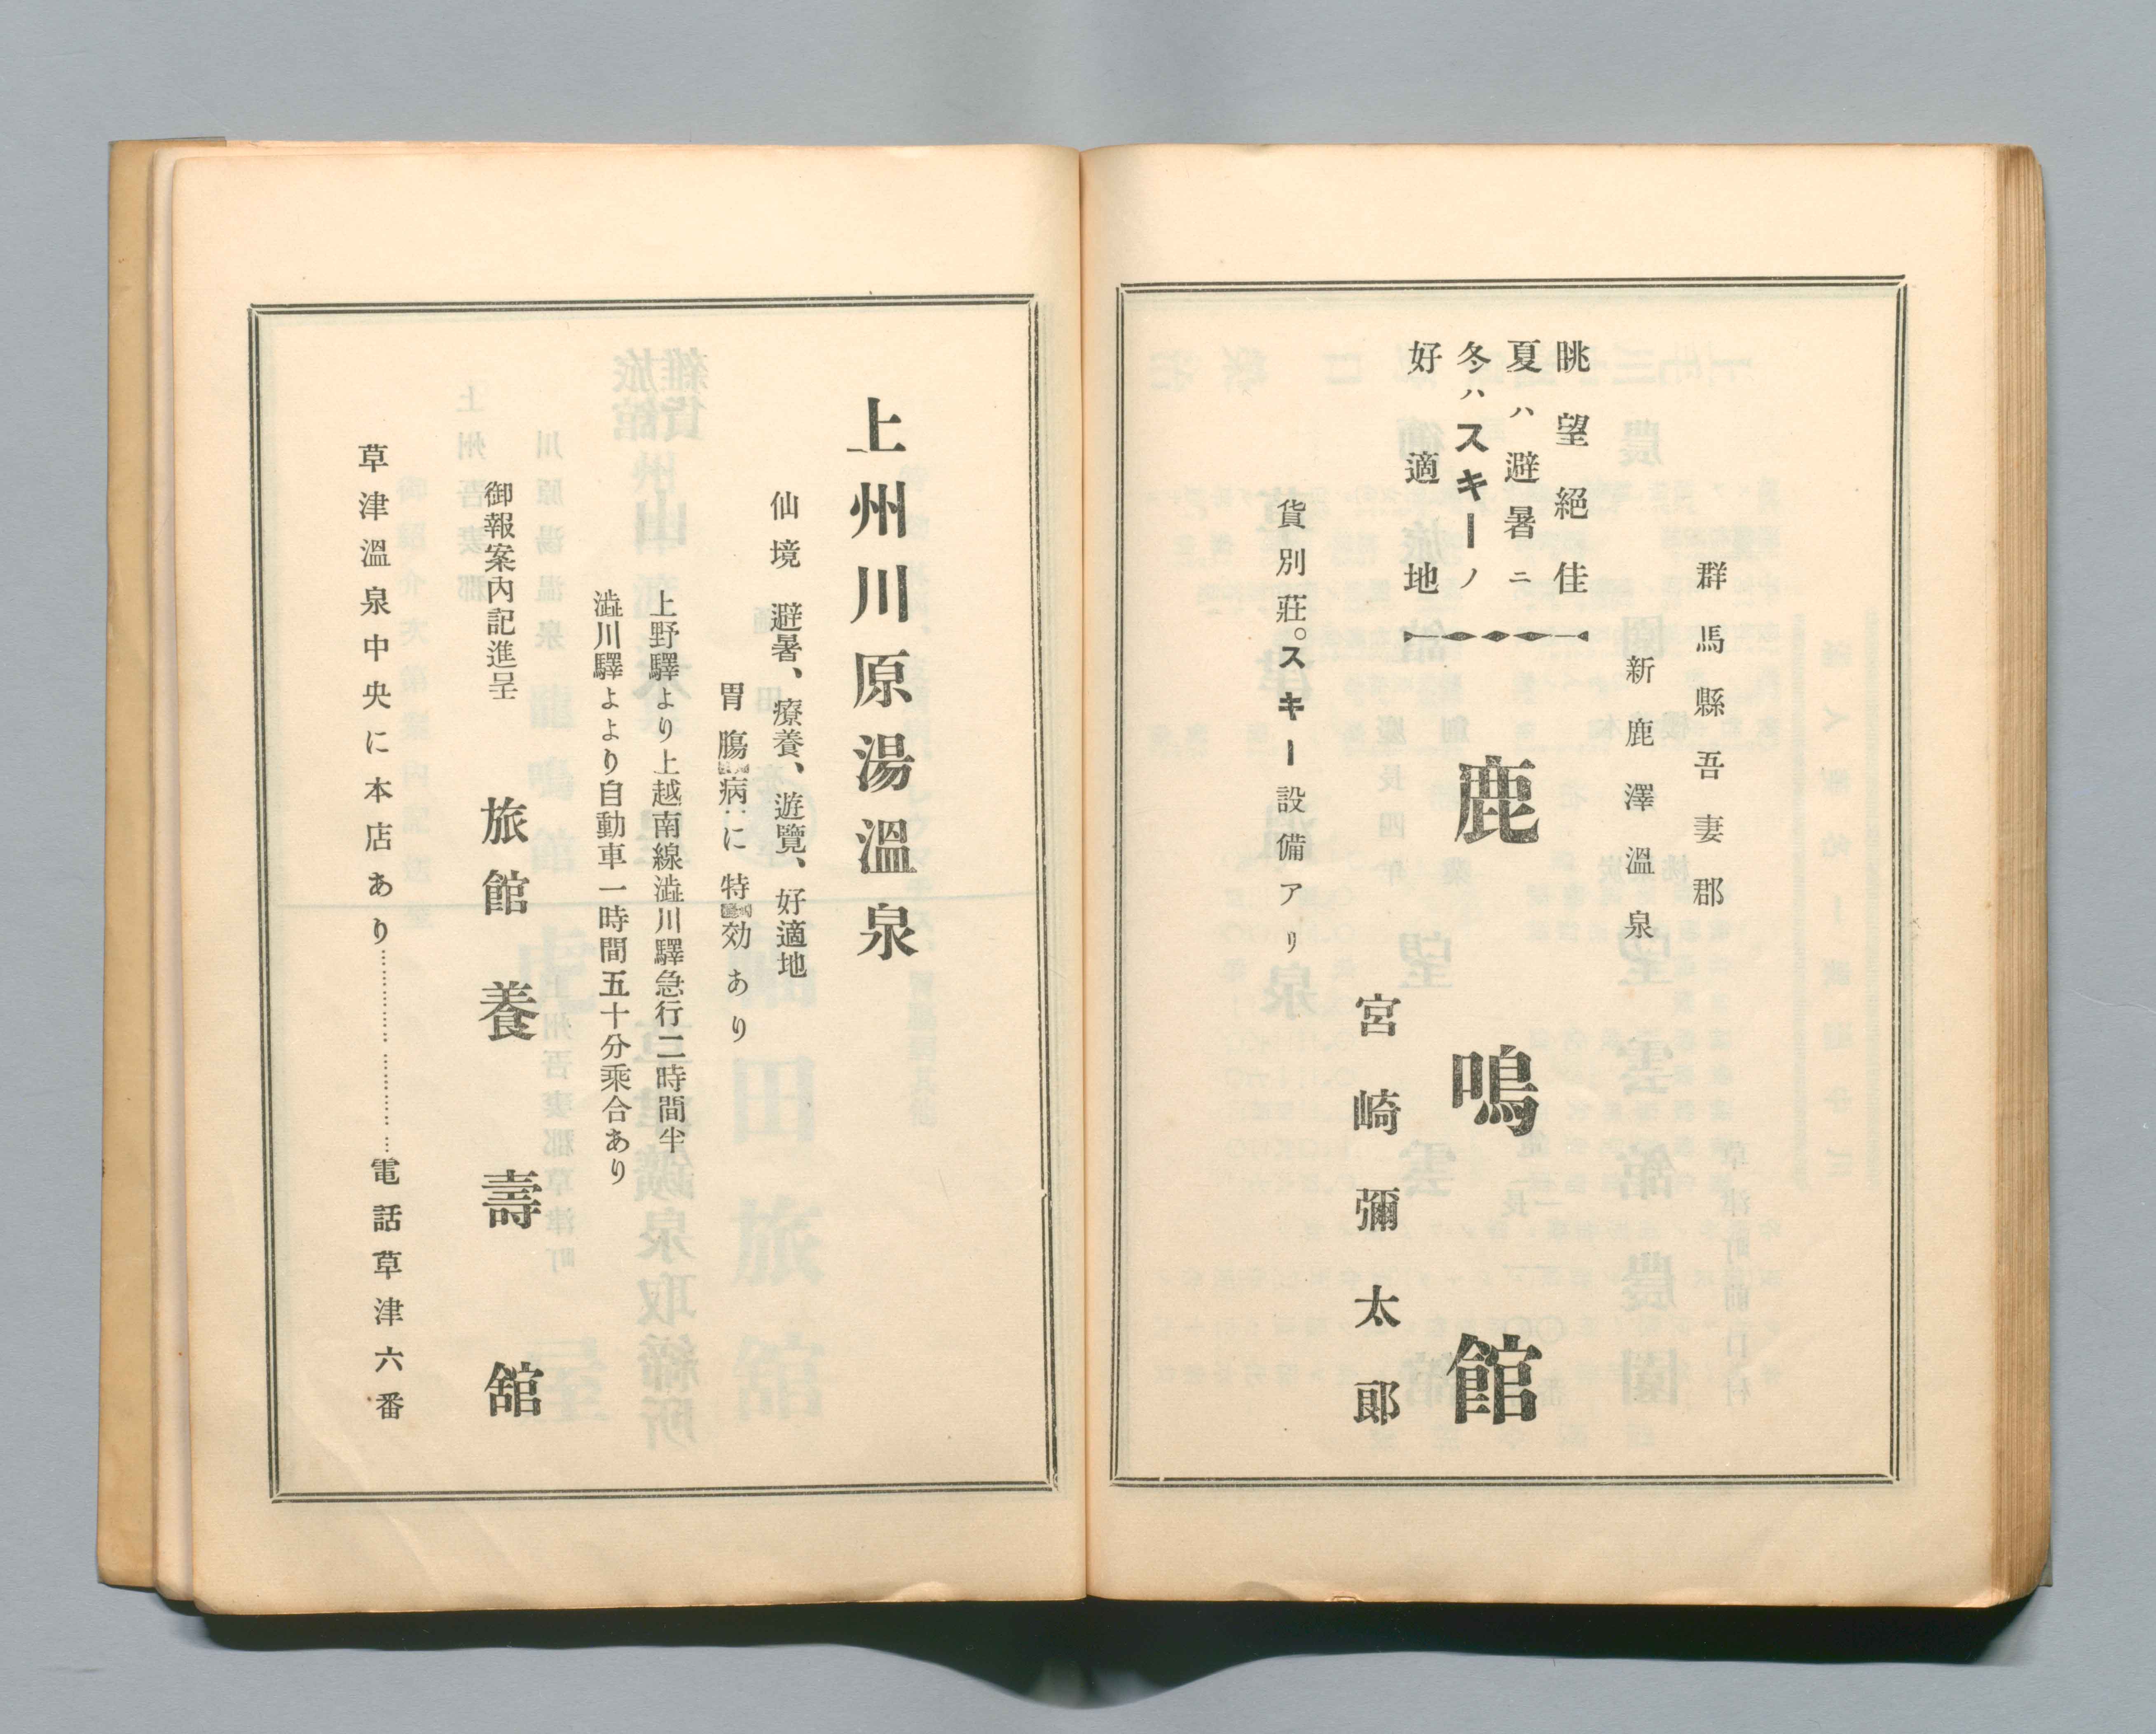 群馬縣吾妻郡
新鹿澤溫泉
眺望絕佳
夏ハ避暑ニ
冬ハスキーノ
好適地
鹿鳴館
宮崎彌太郞
貨別莊。スキー設備アリ
上州川原湯溫泉
仙境 避暑、療養、遊覽、好適地
胃膓病に特効あり
上野驛より上越南線澁川驛急行二時間半
澁川驛よより自動車一時間五十分乘合あり
御報案內記進呈
旅館 養壽舘
草津溫泉中央に本店あり………………………電話草津六番